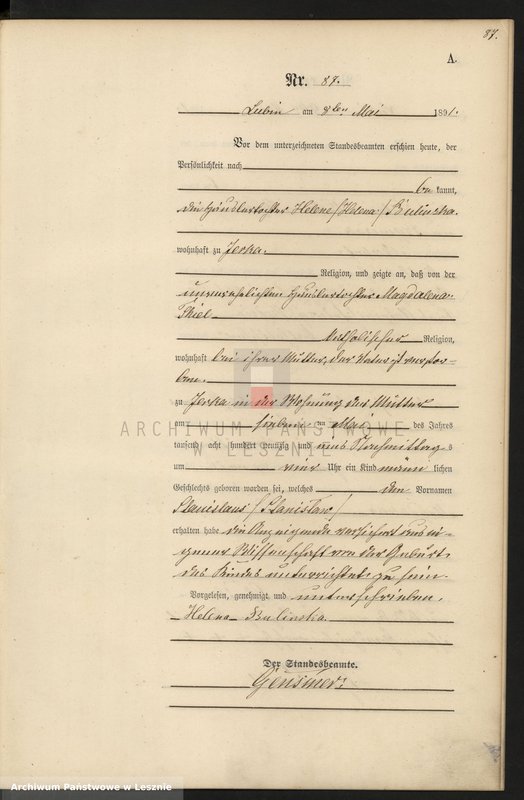 87.
A.
Nr. 87.
Lubin am 8ten Mai 1891.
Vor dem unterzeichneten Standesbeamten erschien heute, der
Persönlichkeit nach
be kannt,
die Häuslertochter Helene /Helena/ Bulinska.
wohnhaft zu Jerka.
Religion, und zeigte an, daß von der
unverehelichten Häuslertochter Magdalena
Skiel
katholischer Religion,
wohnhaft bei ihrer Mutter, der Vater ist verstor-
ben.
zu Jerka in der Wohnung der Mutter
am sieben ten Mai des Jahres
tausend acht hundert neunzig und eins Nachmittag s
um vier Uhr ein Kind männ lichen
Geschlechts geboren worden sei, welches den Vornamen
Stanislaus /Stanisław/
erhalten habe die Anzeigende versichert aus ei-
gener Wissenschaft von der Geburt
des Kindes unterrichtet zu sein.
Vorgelesen, genehmigt und unterschrieben.
Helena Bulinska.
Der Standesbeamte.
Gensmer
ARCHIWUM PAŃSTWOWE
W LESZNIE
Archiwum Państwowe w Lesznie